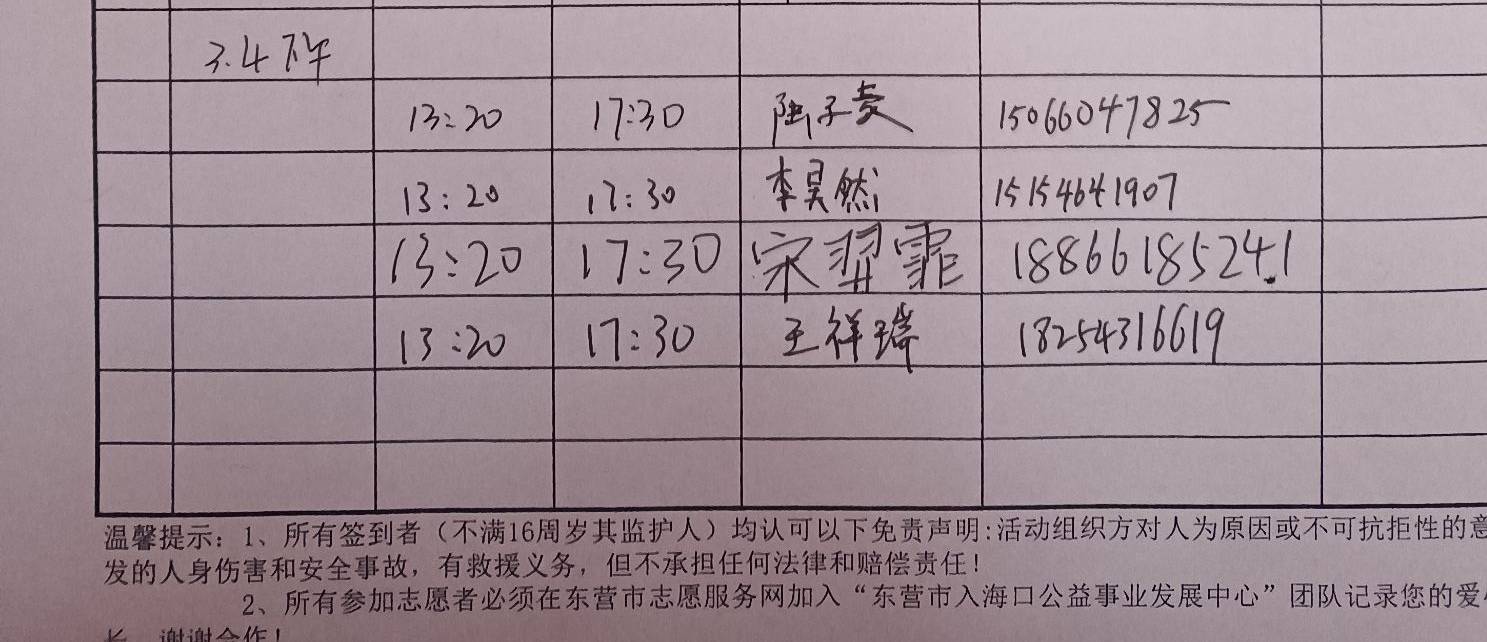 3.4 下午
13:20 17:30 陆子麦 15066047825
13:20 17:30 李昊然 15154641907
13:20 17:30 宋羿霏 18866185241
13:20 17:30 王祥瑞 18254316619
温馨提示：1、所有签到者（不满16周岁其监护人）均认可以下免责声明:活动组织方对人为原因或不可抗拒性的意
发的人身伤害和安全事故，有救援义务，但不承担任何法律和赔偿责任！
2、所有参加志愿者必须在东营市志愿服务网加入“东营市入海口公益事业发展中心”团队记录您的爱
长，谢谢合作！